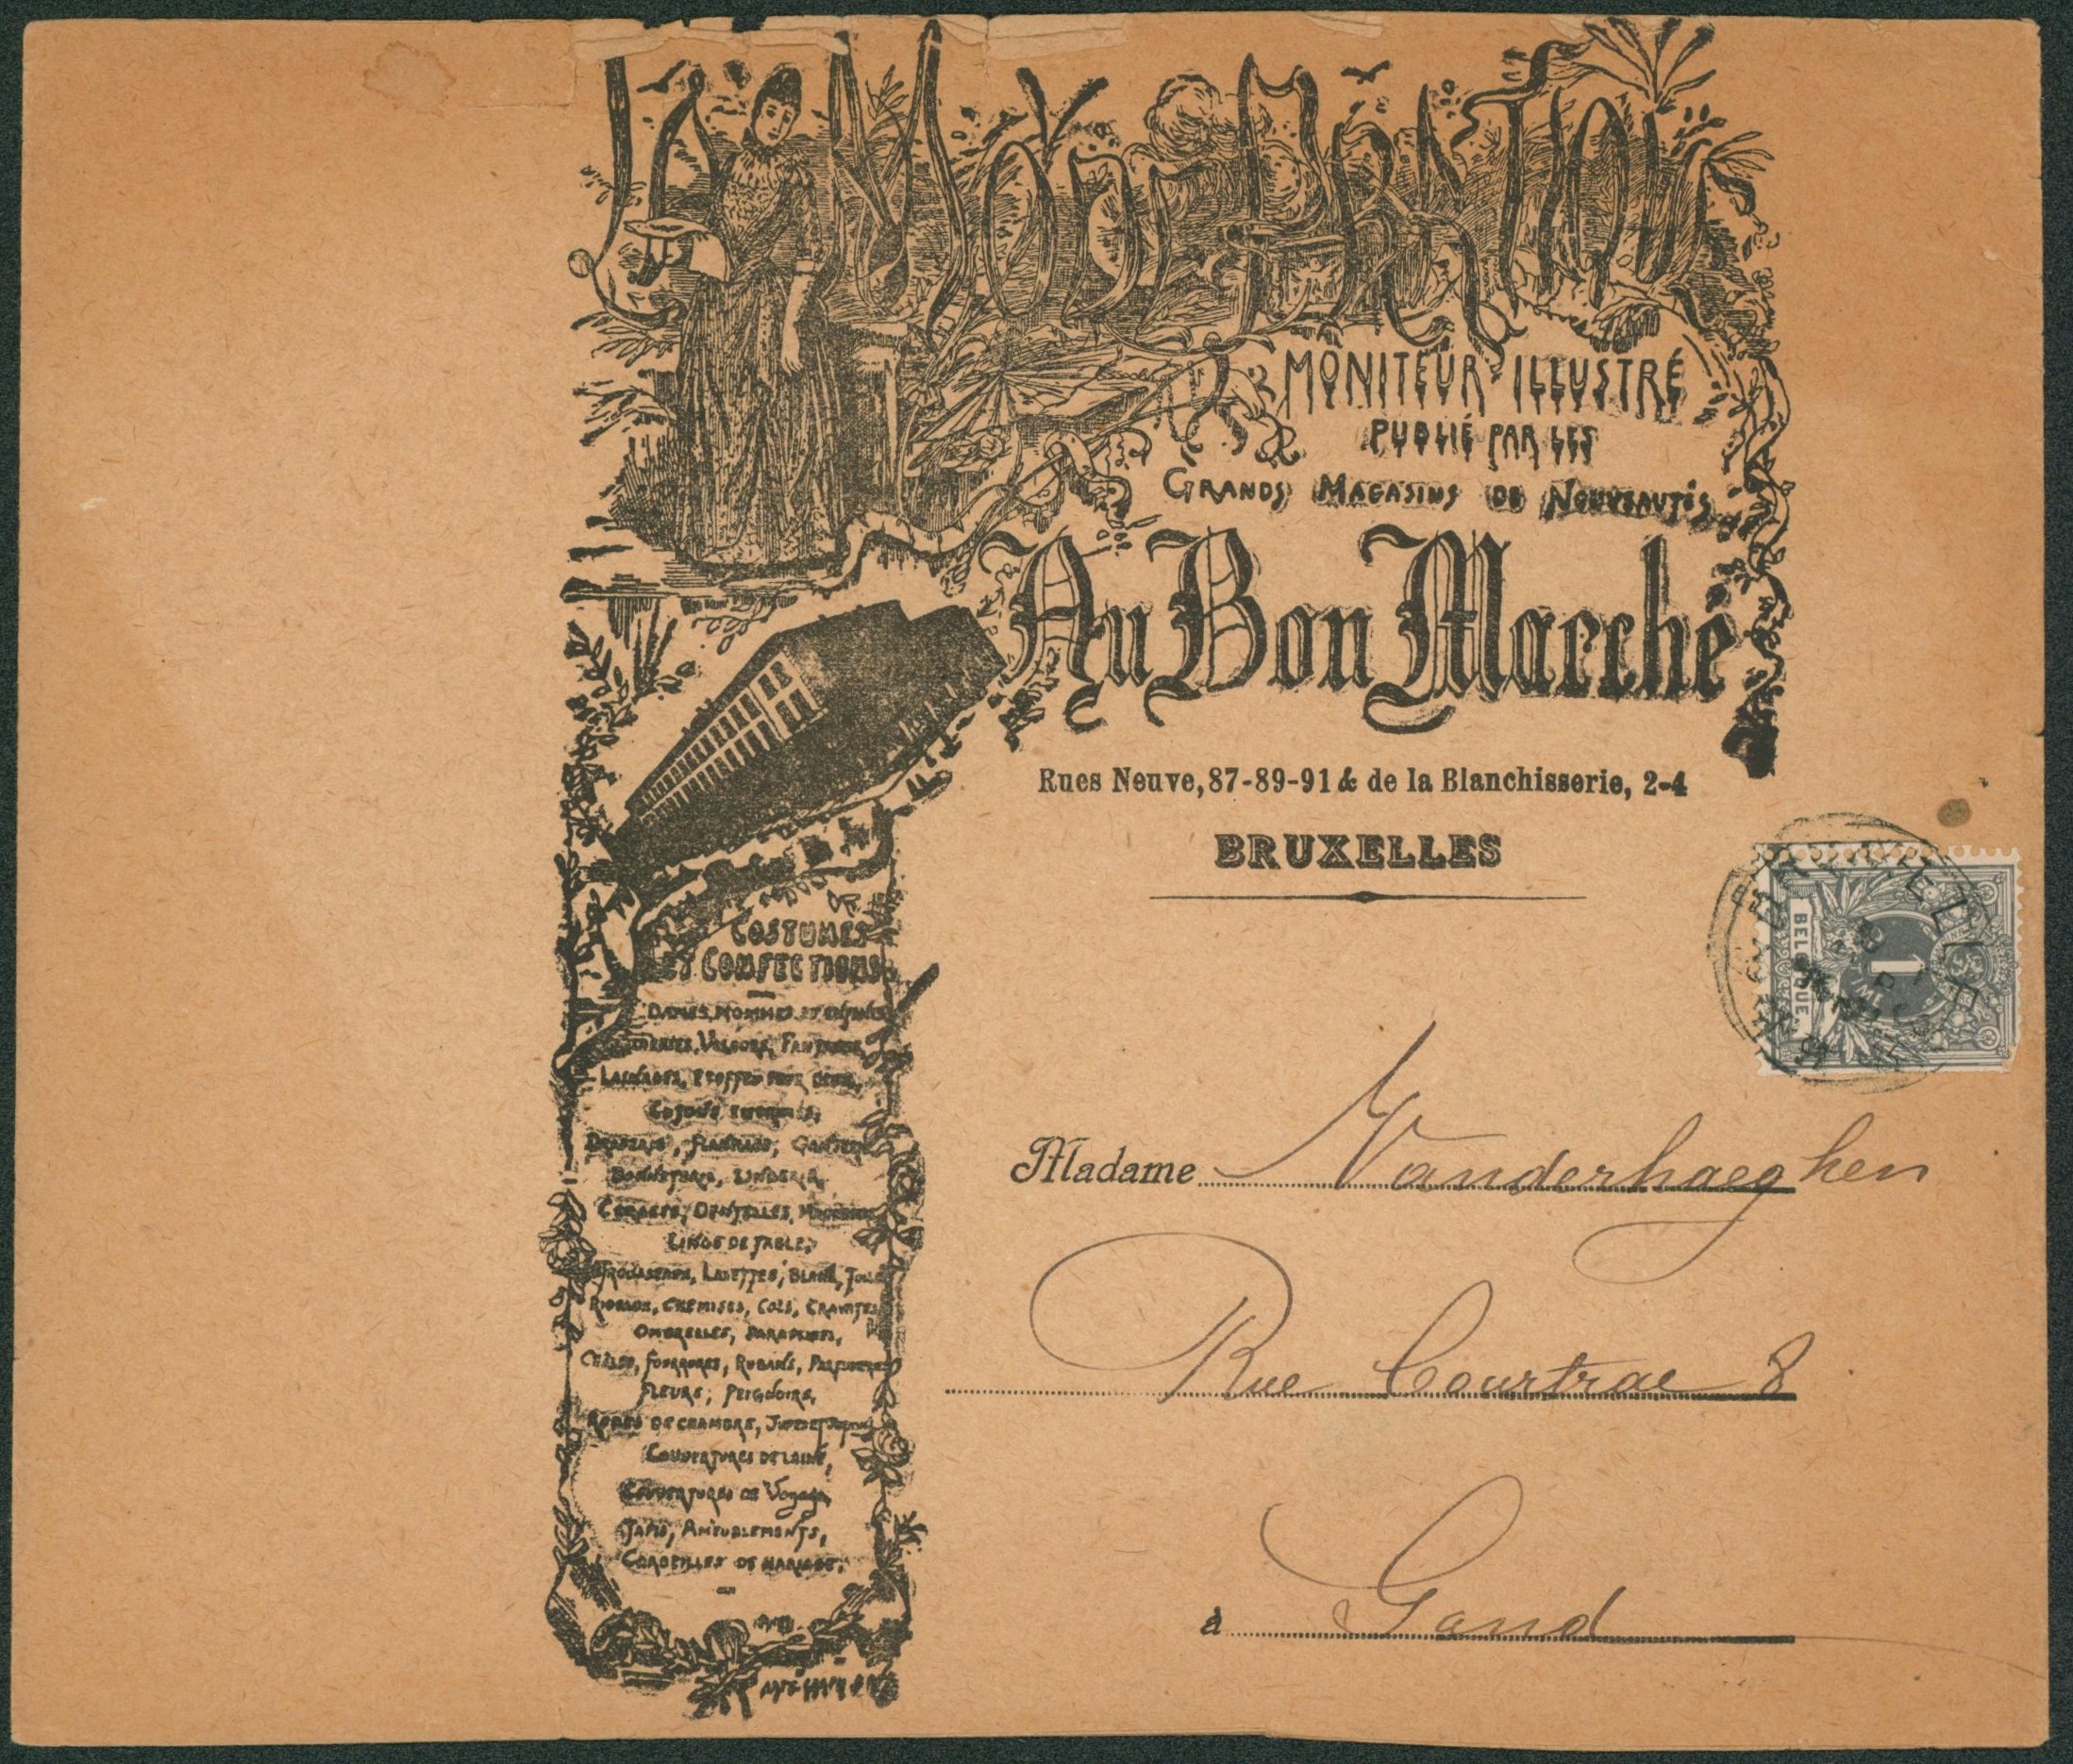 La Mode Pratique
MONITEUR ILLUSTRÉ
PUBLIÉ PAR LES
GRANDS MAGASINS DE NOUVEAUTÉS
Au Bon Marché
Rues Neuve, 87-89-91 & de la Blanchisserie, 2-4
BRUXELLES
BELGIQUE
1
COSTUMES
ET CONFECTIONS
DAMES, HOMMES ET ENFANTS
VELOURS, FANTAISIE
LAINAGES, ETOFFES POUR DEUIL,
DRAPERIE, FLANELLES,
BONNETERIE, LINGERIE,
CORSETS, DENTELLES,
LINGE DE TABLE,
TROUSSEAUX, LAYETTES, BLANC, TOILE
RIDEAUX, CHEMISES, COLS, CRAVATES
OMBRELLES, PARAPLUIES,
CHÂLES, FOURRURES, RUBANS, PARFUMERIE
FLEURS, PEIGNOIRS,
ROBES DE CHAMBRE, JUPES ET JUPONS
COUVERTURES DE LAINE,
COUVERTURES DE VOYAGE
TAPIS, AMEUBLEMENTS,
CORBEILLES DE MARIAGE.
Madame Vanderhaeghen
Rue Courtrai 8
à Gand